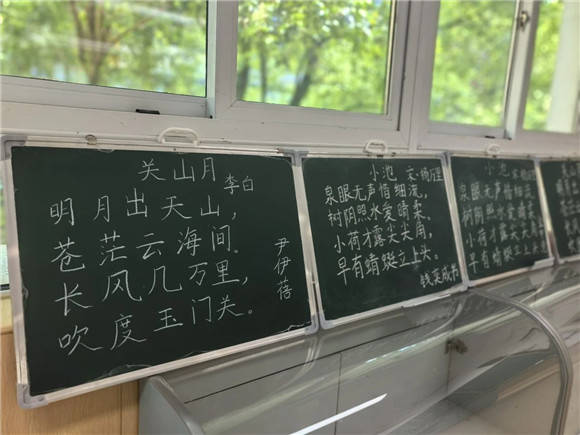 关山月
李白
明月出天山,
苍茫云海间
长风几万里,
吹度玉门关。
尹伊蓓
小池 宋·杨万里
泉眼无声惜细流,
树阴照水爱晴柔。
小荷才露尖尖角,
早有蜻蜓立上头。
小池
泉眼无声惜细流
树阴照水爱晴柔
小荷才露尖尖角
早有蜻蜓立上头。